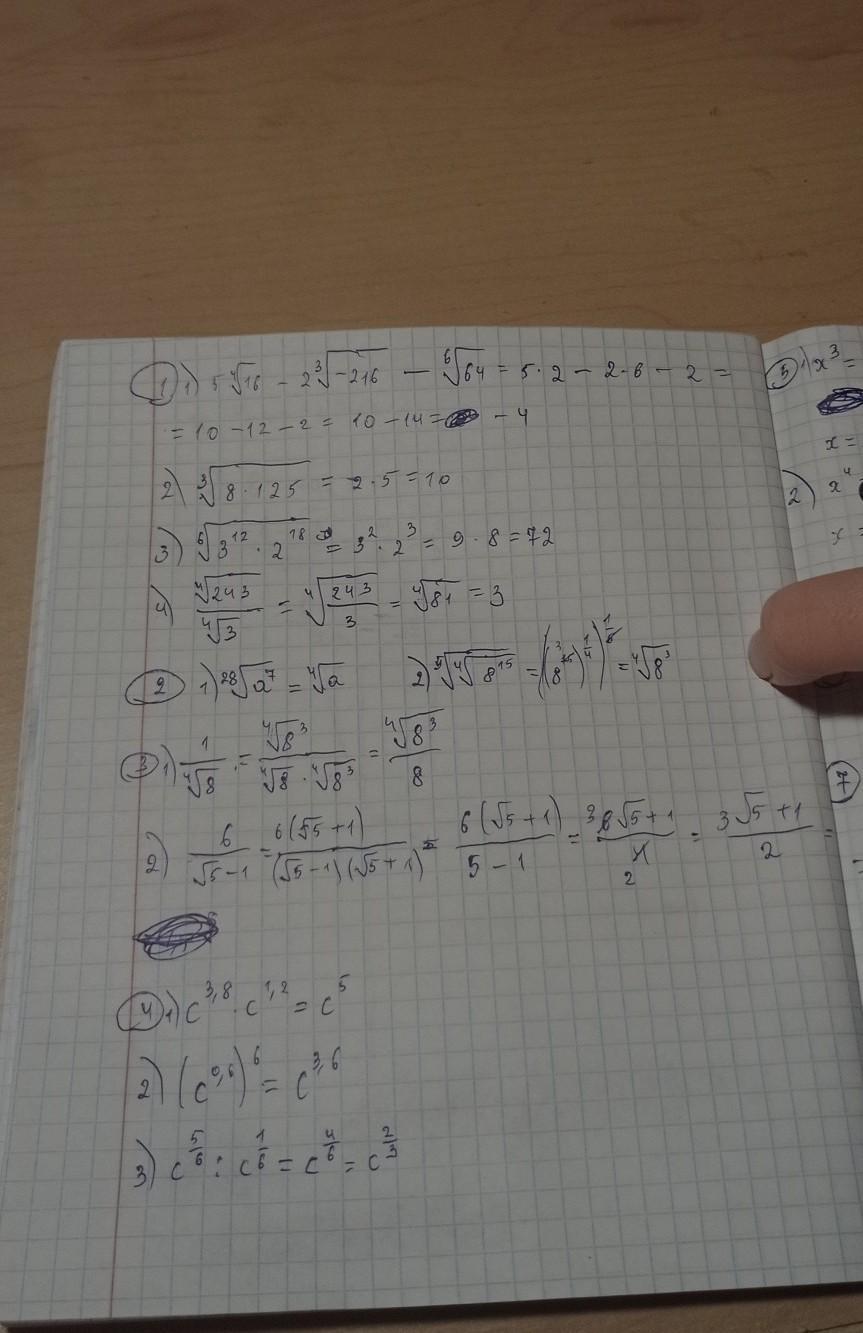 ① 1) 5∜16 − 2∛−216 − ⁶√64 = 5·2 − 2·6 − 2 =
= 10 − 12 − 2 = 10 − 14 = − 4
2) ∛8·125 = 2·5 = 10
3) ⁶√3¹²·2¹⁸ = 3²·2³ = 9·8 = 72
4) ∜243/∜3 = ∜(243/3) = ∜81 = 3
② 1) ²⁸√a⁷ = ∜a 2) ⁵√∜8¹⁵ = ((8¹⁵)^(1/4))^(1/5) = ∜8³
③ 1) 1/∜8 = ∜8³/(∜8·∜8³) = ∜8³/8
2) 6/(√5−1) = 6(√5+1)/((√5−1)(√5+1)) = 6(√5+1)/(5−1) = 6√5+1/4 = 3√5+1/2 =
④ 1) c^3,8 · c^1,2 = c⁵
2) (c^0,6)⁶ = c^3,6
3) c^(5/6) : c^(1/6) = c^(4/6) = c^(2/3)
⑤ 1) x³ =
x =
2) x⁴
x =
⑦
=